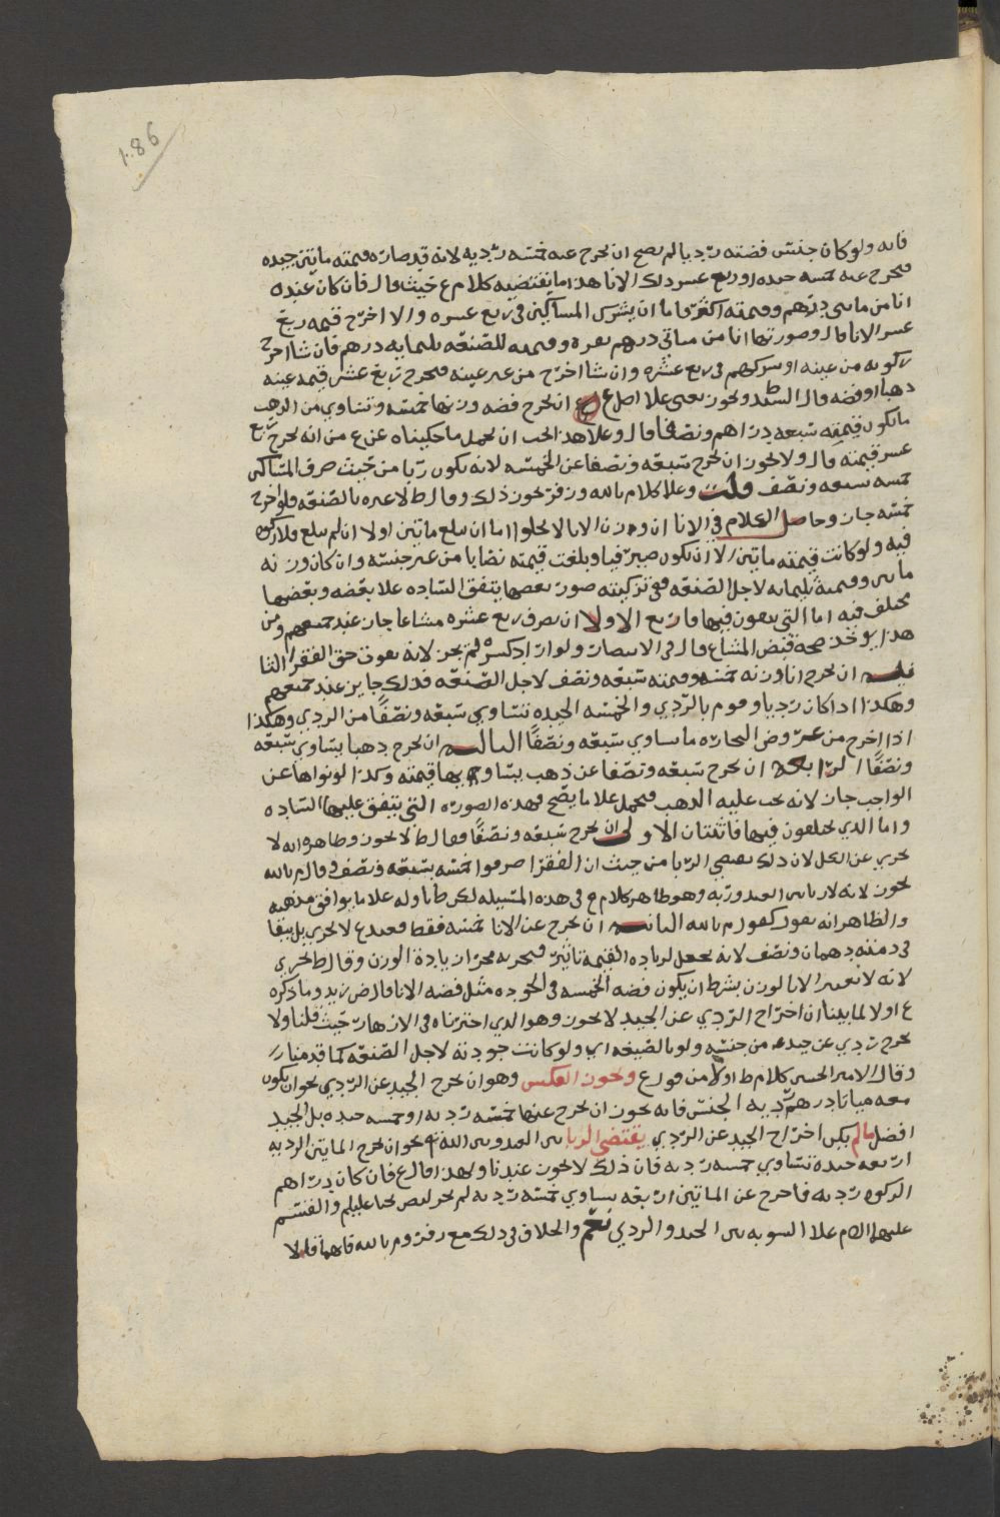 1086
فانه ولو كان جنس فضته رديا لم يصح ان يخرج عنه خمسه رديه لانه قد صاره قيمته مائتين جيده
فيخرج عنه خمسه جيده او ربع عشر ذلك الانا هذا ما يقتضيه كلام ع حيث قال فان كان عنده
انا من مائتي درهم وقيمته اكثر فاما ان يشرك المساكين في ربع عشره والا اخرج قيمه ربع
عشر الانا قال وصورتها انا من مائتي درهم نقره وقيمته للصنعه ثلثمايه درهم فان شا اخرج
زكوته من عينه او شركهم في ربع عشره وان شا اخرج من غير عينه فيخرج ربع عشر قيمه عينه
ذهبا او فضه قال السيد ويجوز يعني علا اصل ع ان يخرج فضه وزنها خمسه وتساوي من الذهب
ما تكون قيمته سبعه دراهم ونصفا قال وعلا هذا يجب ان يحمل ما حكيناه عن ع من انه يخرج ربع
عشر قيمته قال ولا يجوز ان يخرج سبعه ونصفا عن الخمسه لانه يكون ربا من حيث صرف المساكين
خمسه بسبعه ونصف قلت وعلا كلام بالله وزفر يجوز ذلك وقال ط لا عبره بالصنعه فلو اخرج
خمسه جاز وحاصل الكلام في الانا ان وزن الانا لا يخلو اما ان يبلغ مائتين او لا ان لم يبلغ فلا زكوه
فيه ولو كانت قيمته مائتين الا ان يكون صيرفيا وبلغت قيمته نصابا من غير جنسه وان كان وزنه
مائتين وقيمته ثلثمايه لاجل الصنعه ففي تزكيته صور بعضها يتفق الساده علا بعضه وبعضها
مختلف فيه اما التي يتفقون فيها فاربع الاولا ان يصرف ربع عشره مشاعا جاز عند جميعهم ومن
هذا يوخذ صحة قبض المشاع قال في الانتصار ولو اراد كسره لم يجز لانه يفوت حق الفقرا الثا
نيه ان يخرج انا وزنه خمسه وقيمته سبعه ونصف لاجل الصنعه فذلك جايز عند جميعهم
وهكذا اذا كان رديا وقوم بالردي والخمسه الجيده تساوي سبعه ونصفا من الردي وهكذا
اذا اخرج من عروض التجاره ما يساوي سبعه ونصفا الثالثه ان يخرج ذهبا يساوي سبعه
ونصفا الرابعه ان يخرج سبعه ونصفا عن ذهب يساوي بها قيمته وكذا لو نواها عن
الواجب جاز لانه يجب عليه الذهب فيحمل علا ما يصح فهذه الصوره التي يتفق عليها الساده
واما الذي يختلفون فيها فاثنتان الاولى ان يخرج سبعه ونصفا فقال ط لا يجوز وظاهره انه لا
يجزي عن الكل لان ذلك يقتضي الربا من حيث ان الفقرا صرفوا خمسه بسبعه ونصف وقال م بالله
يجوز لانه لا ربا بين العبد وربه وهو ظاهر كلام ع في هذه المسيله لكن ط تاوله علا ما يوافق مذهبه
والظاهر انه يقول كقول م بالله الثانيه ان يخرج عن الانا خمسه فقط فعند ع لا يجزي بل يبقا
في ذمته درهمان ونصف لانه يجعل لزياده القيمه تاثير فيجريه مجرا زيادة الوزن وقال ط يجزي
لانه لا يعتبر الا بالوزن بشرط ان يكون فضه الخمسه في الجوده مثل فضه الانا قال ض زيد وما ذكره
ع اولا لما بينا ان اخراج الردي عن الجيد لا يجوز وهو الذي اخترناه في الازهار حيث قلنا ولا
يخرج ردي عن جيد من جنسه ولو بالصنعه اي ولو كانت جودته لاجل الصنعه كما قدمنا
وقال الامير الحسين كلام ط اولا من قول ع ويجوز العكس وهو ان يخرج الجيد عن الردي نحو ان يكون
معه ميتا درهم رديه الجنس فانه يجوز ان يخرج عنها خمسه رديه او خمسه جيده بل الجيد
افضل ما لم يكن اخراج الجيد عن الردي يقتضي الربا بين العبد وبين الله تع نحو ان يخرج المايتين الرديه
اربعه جيده تساوي خمسه رديه فان ذلك لا يجوز عندنا ولهذا قال ع فان كان دراهم
الزكوه رديه فاخرج عن المايتين اربعه يساوي خمسه رديه لم يجز لنص يحيا عليلم والقسم
عليهما السلام علا السويه بين الجيد والردي نعم والخلاف في ذلك مع زفر وم بالله فانهما قالا